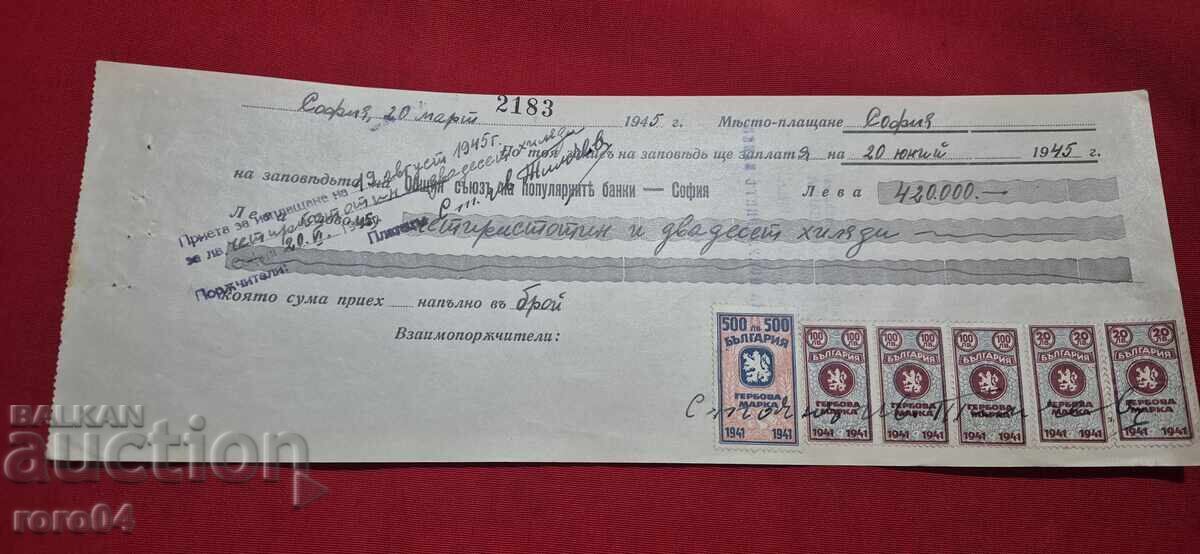 2183
София, 20 март 1945 г. Мѣсто-плащане София
По тоя записъ на заповѣдь ще заплатя на 20 юний 1945 г.
на заповѣдьта на Общия съюзъ на популярнитѣ банки — София Лева 420.000.—
Лева четиристотин и двадесет хиляди
която сума приех напълно въ брой
Взаимопоржчители:
Приета за изплащане на 19 август 1945г.
за лв. четиристотин и двадесет хиляди
20.VI.
Платецъ
Поржчители:
500 лв 500
БЪЛГАРИЯ
ГЕРБОВА
МАРКА
1941 1941
100 лв. 100 лв.
БЪЛГАРИЯ
ГЕРБОВА
МАРКА
1941 1941
100 лв. 100 лв.
БЪЛГАРИЯ
ГЕРБОВА
МАРКА
1941 1941
100 лв. 100 лв.
БЪЛГАРИЯ
ГЕРБОВА
МАРКА
1941 1941
20 лв. 20 лв.
БЪЛГАРИЯ
ГЕРБОВА
МАРКА
1941 1941
20 лв. 20 лв.
БЪЛГАРИЯ
ГЕРБОВА
МАРКА
1941 1941
BALKAN
auction
roro04